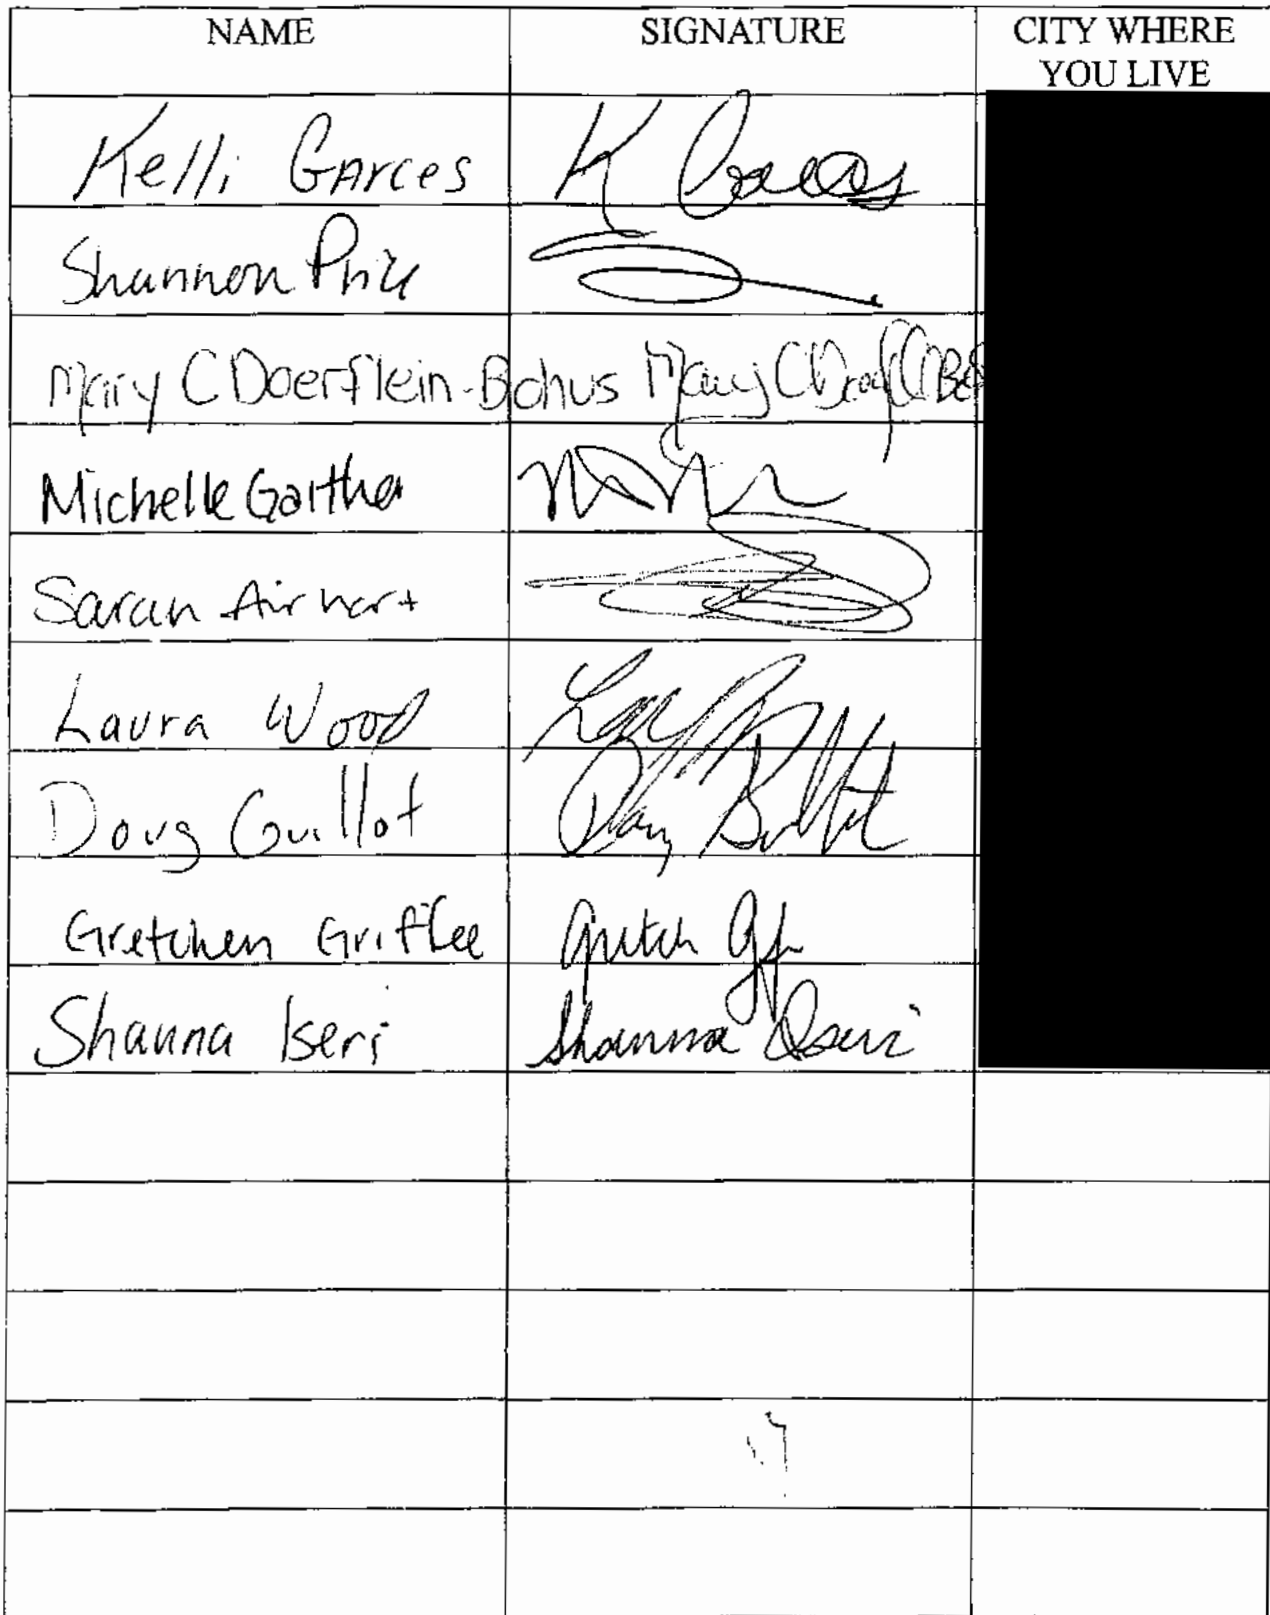 NAME SIGNATURE CITY WHERE YOU LIVE
Kelli Garces K Garces
Shannon Price
Mary C Doerflein-Bohus Mary C
Michelle Gaither
Sarah Airhart
Laura Wood
Doug Guillot Doug Guillot
Gretchen Griffee
Shanna Iseri Shanna Iseri